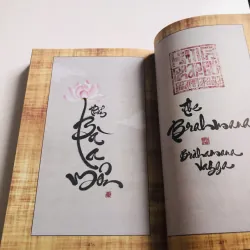 Phẩm
Bà
La
Môn
The
Brahmana
Brāhmana
Vagga